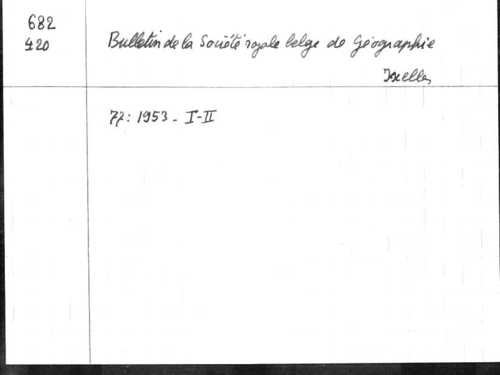 682
420
Bulletin de la Société royale belge de Géographie
Ixelles
77: 1953 - I-II